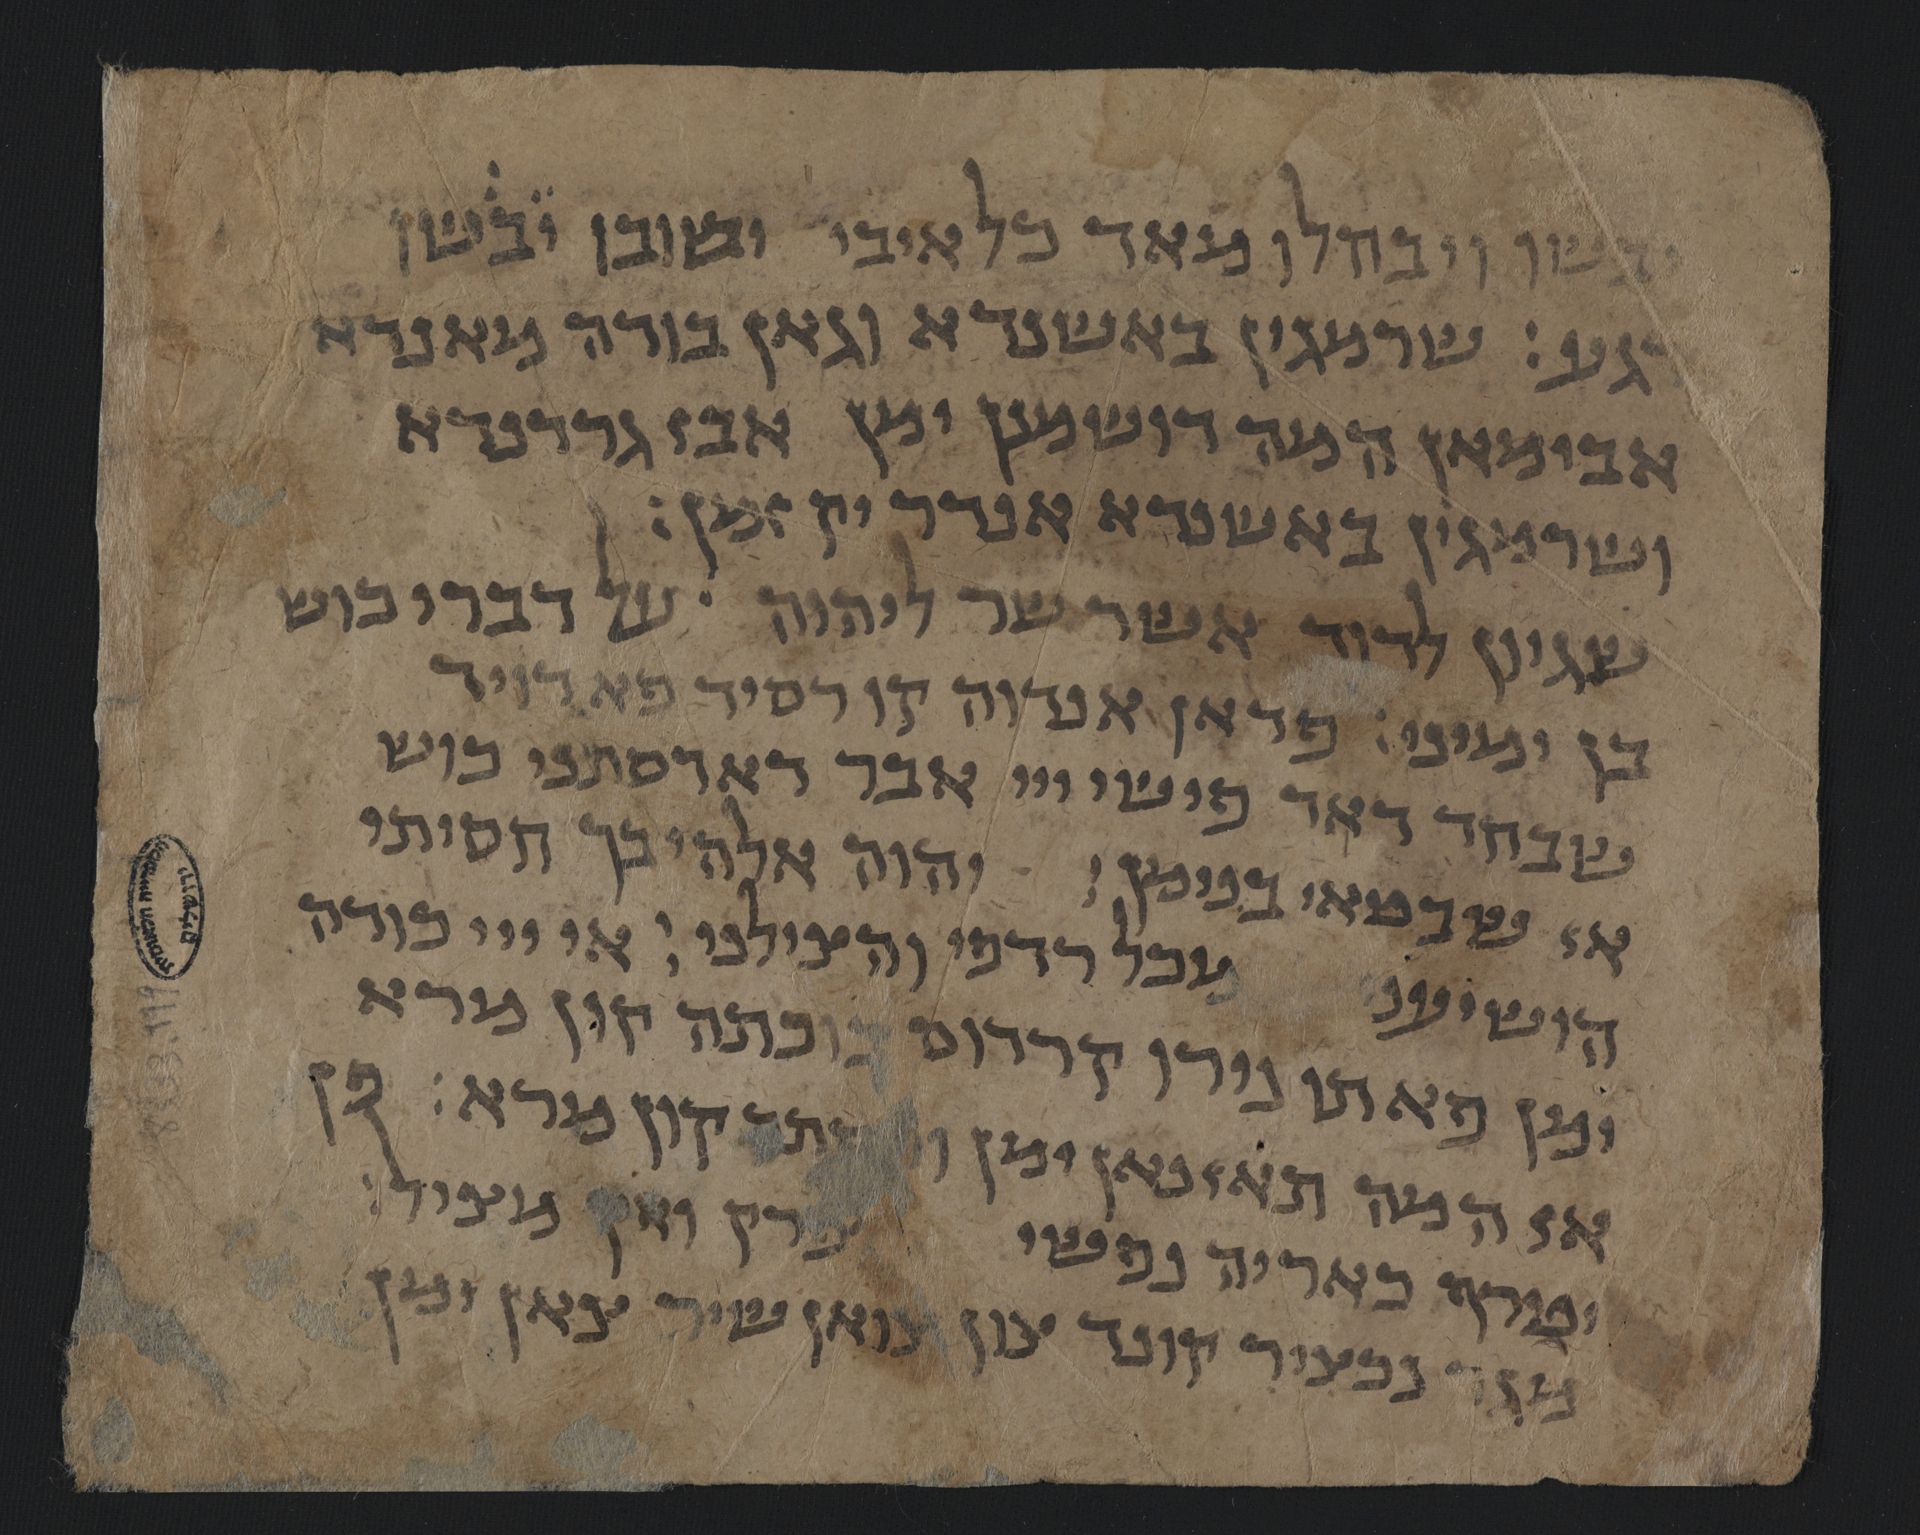 יבשו ויבהלו מאד כל איבי ישובו יבשו
רגע: שרמגין באשנדא וגאן בודה מאנדא
אבימאן המה דושמנן ימן אבז גרדנדא
ושרמגין באשנדא אנדר יק זמן:
שגיון לדוד אשר שר ליהוה על דברי כוש
בן ימיני: פדאן אנדוה קו רסיד פא דויד
שבחד דאד פישי ייי אבר דארסתני כוש
אז שבטאי בנימן: יהוה אלהי בך חסיתי
הושיעני מכל רדפי והצילני: אי ייי כודה
ימן פא תו נירו קרדום בוכתה קון מרא
אז המה תאזנאן ימן קון מרא: פן
יטרף כאריה נפשי פרק ואין מציל:
מגר נכציר קונד צון שיר צאן ימן